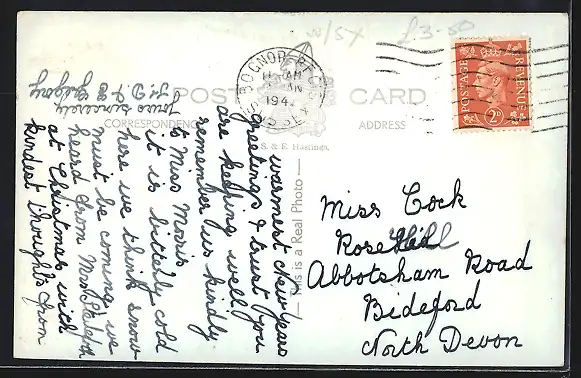 W/SX £3-50
POST CARD
CORRESPONDENCE
ADDRESS
BOGNOR REGIS
SUSSEX
AM
194
POSTAGE
REVENUE
2D
S. & E. Hastings.
— This is a Real Photo —
warmest New Years
greetings & trust you
are keeping well
remember us kindly
to Miss Morris
it is bitterly cold
here we think snow
must be coming we
heard from Mrs
at Christmas with
kindest thoughts from
Yours sincerely
Miss Cock
Rose Hill
Abbotsham Road
Bideford
North Devon